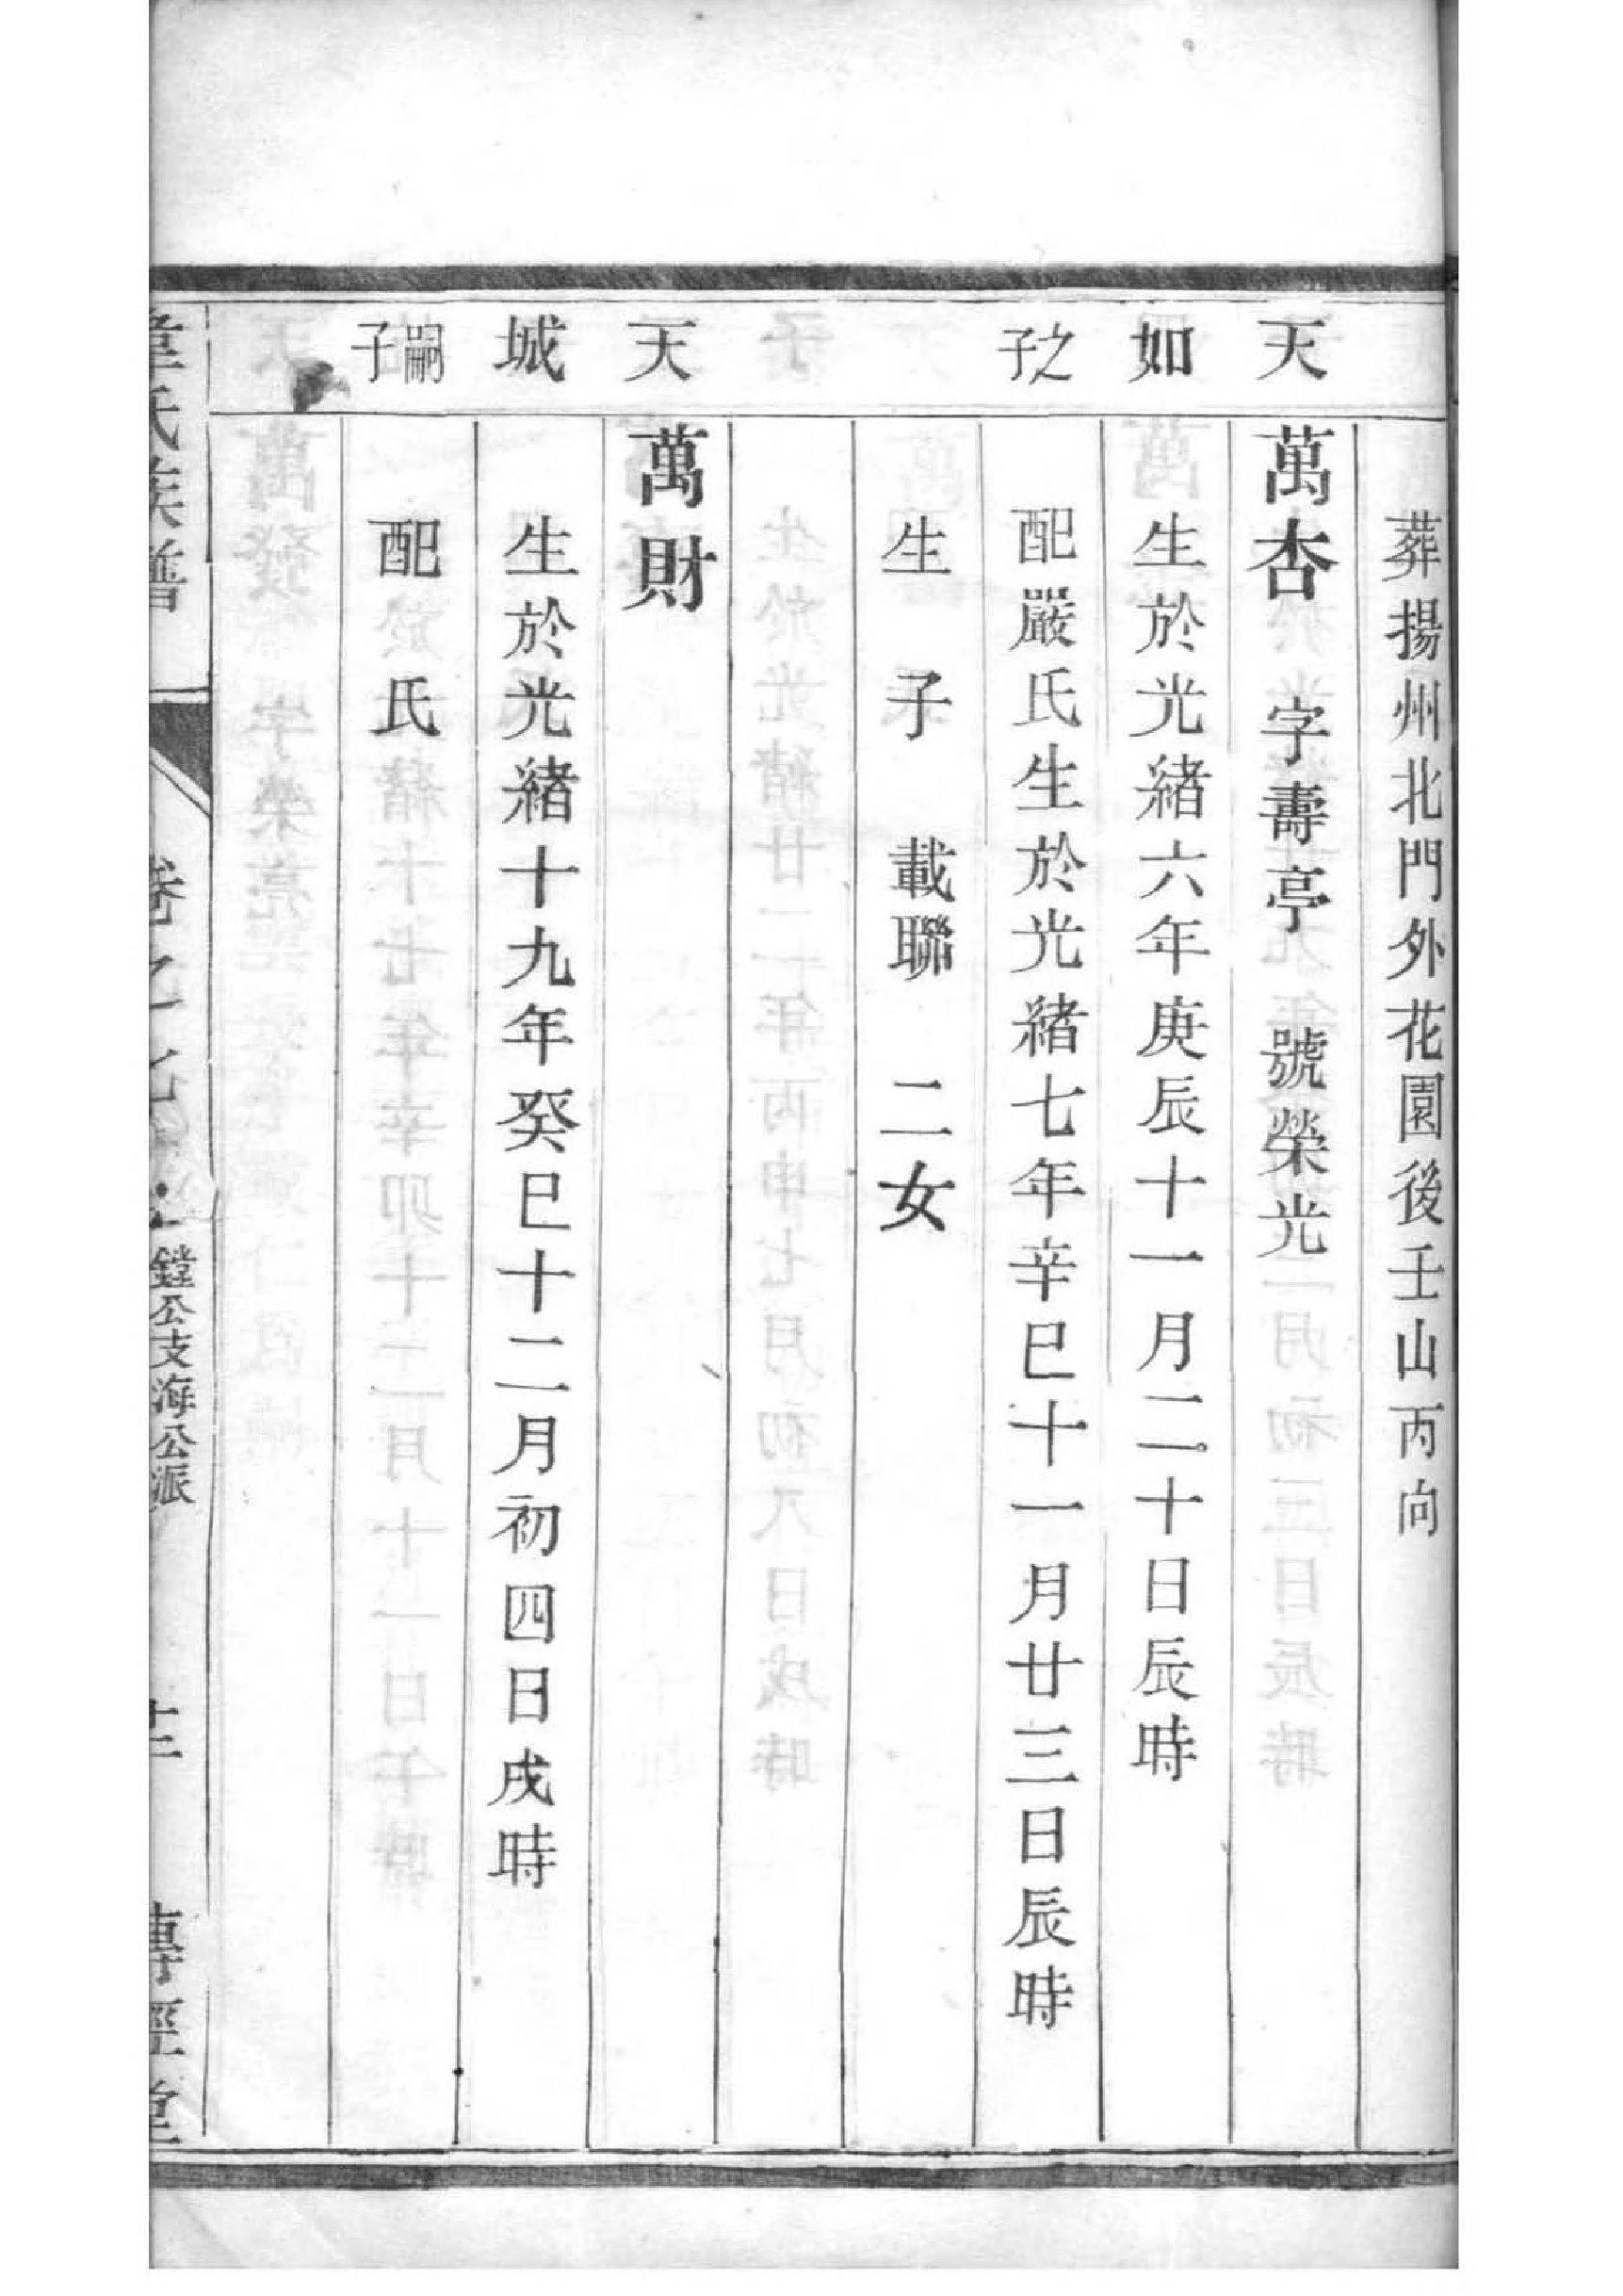 葬揚州北門外花園後壬山丙向
天
萬杏 字壽亭 號榮光
如
生於光緒六年庚辰十一月二十日辰時
之子
配嚴氏生於光緒七年辛巳十一月廿三日辰時
生子 載聯 二女
天
萬財
城
生於光緒十九年癸巳十二月初四日戌時
嗣子
配 氏
氏族譜
卷之七
鏜公支海公派
傳經堂